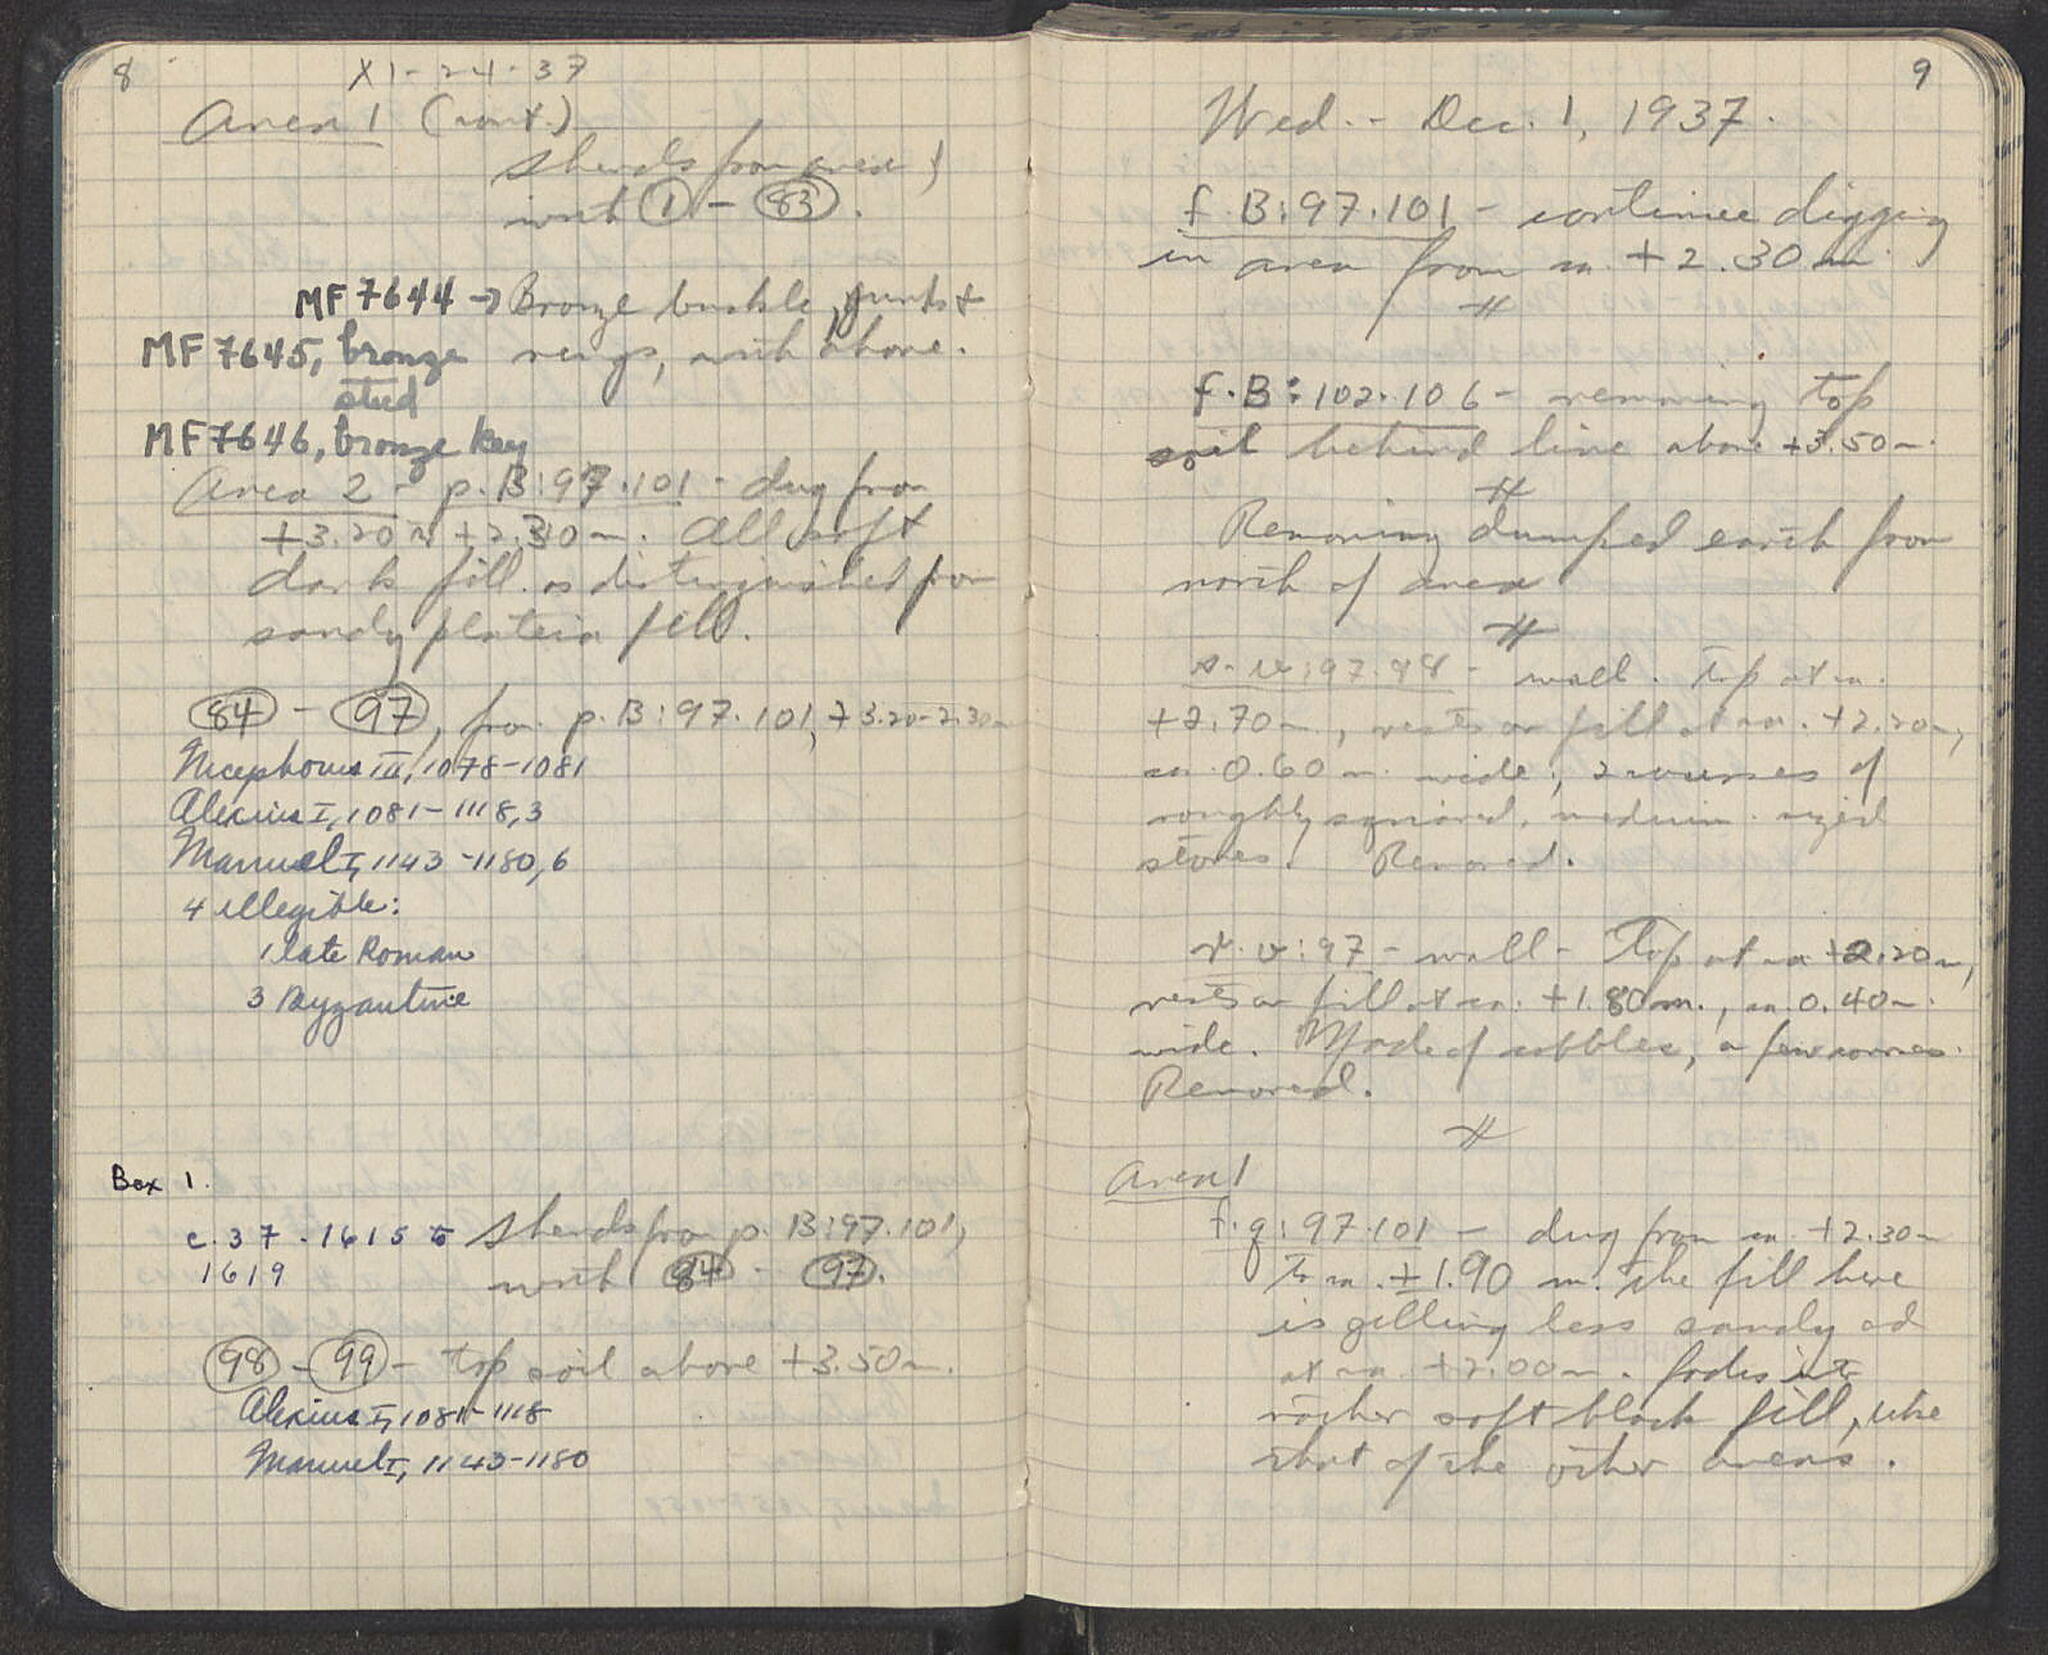 8
XI-24-37
Area 1 (cont.)
Sherds from area 1
with (1) - (83).
MF 7644 → Bronze buckle, &
MF 7645, bronze rings, with above.
stud
MF 7646, bronze key
Area 2 - p.B:97.101 - dug from
+3.20 to +2.30 m. All soft
dark fill as distinguished from
sandy plateia fill.
(84) - (97), from p.B:97.101, +3.20-2.30m
Nicephorus III, 1078-1081
Alexius I, 1081-1118, 3
Manuel I, 1143-1180, 6
4 illegible:
1 late Roman
3 Byzantine
Box 1.
C.37-1615 to Sherds from p.B:97.101,
1619 with (84) - (97).
(98) - (99) - top soil above +3.50m.
Alexius I, 1081-1118
Manuel I, 1143-1180
9
Wed. - Dec. 1, 1937.
f.B:97.101 - continue digging
in area from ca. +2.30 m.
#
f.B:102.106 - removing top
soil behind line above +3.50 m.
#
Removing dumped earth from
north of area
#
:97.98 - wall. Top at ca.
+2.70 m, rests on fill at ca. +2.20 m,
ca. 0.60 m. wide, 2 courses of
roughly squared, medium sized
stones. Removed.
:97 - wall - Top at ca +2.20 m,
rests on fill at ca. +1.80 m., ca. 0.40 m.
wide. Made of cobbles, a few courses.
Removed.
#
Area 1
f.q:97.101 - dug from ca. +2.30 m
to ca. +1.90 m. The fill here
is getting less sandy and
at ca. +2.00 m. fades into
rather soft black fill, like
that of the other areas.